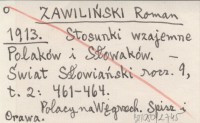 ZAWILIŃSKI Roman
1913. Stosunki wzajemne
Polaków i Słowaków. —
Świat Słowiański rocz. 9,
t. 2: 461-464.
Polacy na Węgrzech. Spisz i
Orawa.